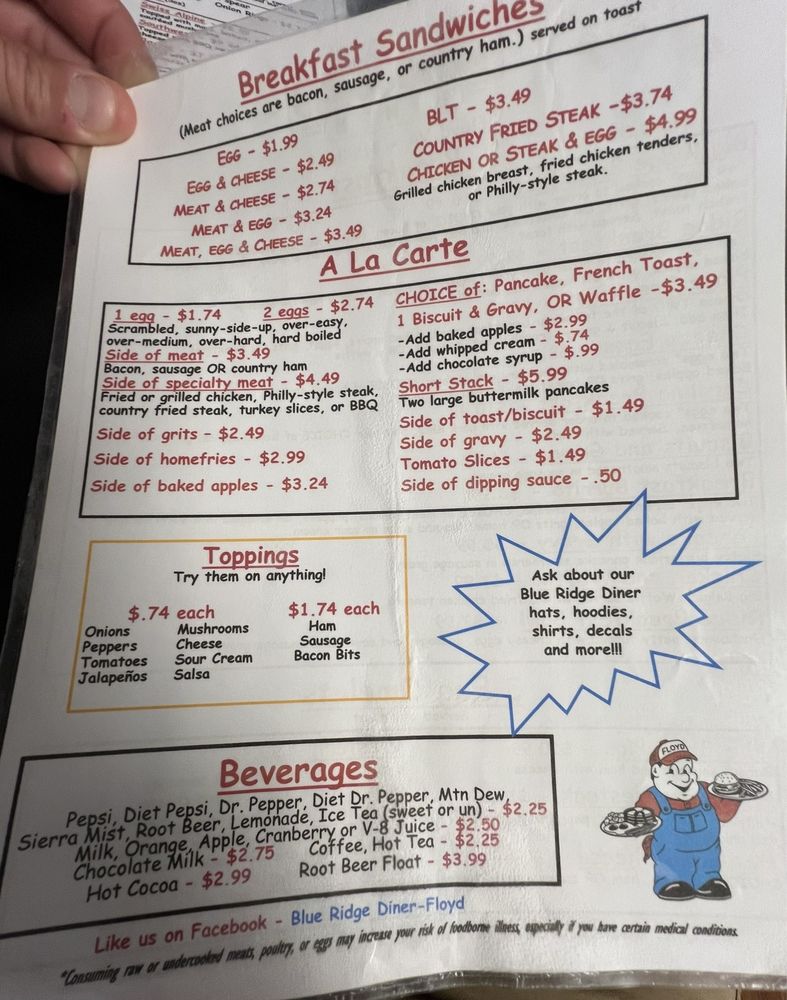 Swiss Alpine
Onion
Breakfast Sandwiches
(Meat choices are bacon, sausage, or country ham.) served on toast
Egg - $1.99
Egg & cheese - $2.49
Meat & cheese - $2.74
Meat & egg - $3.24
Meat, egg & Cheese - $3.49
BLT - $3.49
Country Fried Steak -$3.74
Chicken or Steak & Egg - $4.99
Grilled chicken breast, fried chicken tenders,
or Philly-style steak.
A La Carte
1 egg - $1.74 2 eggs - $2.74
Scrambled, sunny-side-up, over-easy,
over-medium, over-hard, hard boiled
Side of meat - $3.49
Bacon, sausage OR country ham
Side of specialty meat - $4.49
Fried or grilled chicken, Philly-style steak,
country fried steak, turkey slices, or BBQ
Side of grits - $2.49
Side of homefries - $2.99
Side of baked apples - $3.24
CHOICE of: Pancake, French Toast,
1 Biscuit & Gravy, OR Waffle -$3.49
-Add baked apples - $2.99
-Add whipped cream - $.74
-Add chocolate syrup - $.99
Short Stack - $5.99
Two large buttermilk pancakes
Side of toast/biscuit - $1.49
Side of gravy - $2.49
Tomato Slices - $1.49
Side of dipping sauce - .50
Toppings
Try them on anything!
$.74 each
Onions
Peppers
Tomatoes
Jalapeños
Mushrooms
Cheese
Sour Cream
Salsa
$1.74 each
Ham
Sausage
Bacon Bits
Ask about our
Blue Ridge Diner
hats, hoodies,
shirts, decals
and more!!!
Beverages
Pepsi, Diet Pepsi, Dr. Pepper, Diet Dr. Pepper, Mtn Dew,
Sierra Mist, Root Beer, Lemonade, Ice Tea (sweet or un) - $2.25
Milk, Orange, Apple, Cranberry or V-8 Juice - $2.50
Chocolate Milk - $2.75 Coffee, Hot Tea - $2.25
Hot Cocoa - $2.99 Root Beer Float - $3.99
FLOYD
Like us on Facebook - Blue Ridge Diner-Floyd
*Consuming raw or undercooked meats, poultry, or eggs may increase your risk of foodborne illness, especially if you have certain medical conditions.